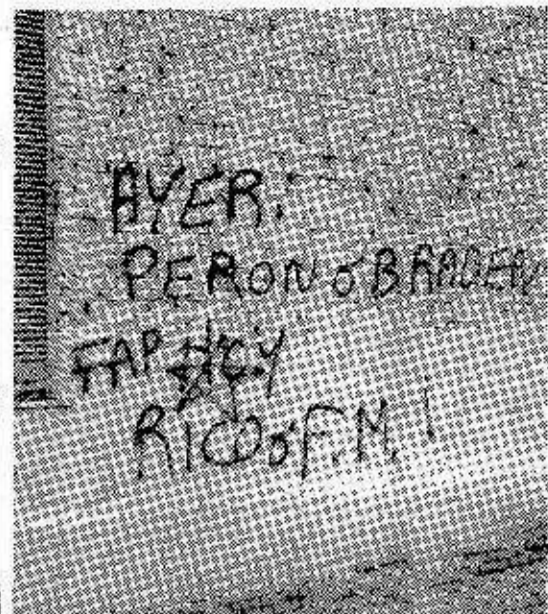 AYER.
PERON o BRADEN
FAP HOY
RICO o F.M.I